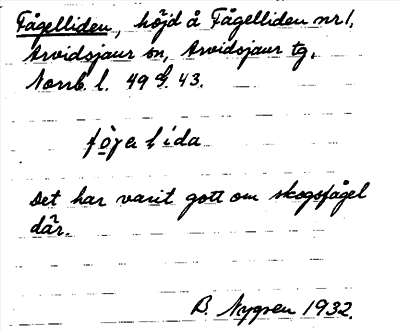 Fågelliden, höjd å Fågelliden nr 1,
Arvidsjaur sn, Arvidsjaur tg,
Norrb. l. 49 43.
Det har varit gott om skogsfågel
där.
B. Nygren 1932.